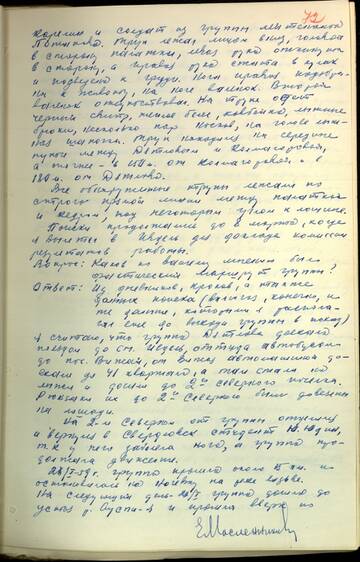 72
Карелин и солдат из группы лейтенанта
Потапова. Труп лежал лицом вниз, головой
в сторону палатки, левая рука откинута
в сторону, а правая рука сжата в кулак
и подведена к груди. Нога правая подобра-
на к животу, на ноге валенок. Второй
валенок отсутствовал. На трупе одет
черный свитр, теплое белье, ковбойка, лыжные
брюки, несколько пар носков, на голове лыж-
ная шапочка. Труп находился на середине
пути между Дятловым и Колмогоровой,
а точнее в от Колмогоровой и в
180 м. от Дятлова.
Все обнаруженные трупы лежали по
строго прямой линии между палаткой
и кедром, под некоторым углом к лощине.
Поиски продолжались до 8 марта, когда
я вылетел в Ивдель для доклада комиссии
результатов работы.
Вопрос: Каков по вашему мнению был
фактический маршрут группы?
Ответ: Из дневников, кроков, а также
данных поиска (вылазки, конечно, и
те данные, которыми я распола-
гал еще до выхода группы в поход)
я считаю, что группа Дятлова доехала
поездом до ст. Ивдель, оттуда автобусом
до пос. Вижай, от Вижая автомашиной до-
ехали до 41 квартала, а там стали на
лыжи и дошли до 2го северного поселка.
Рюкзаки их до 2го Северного были довезены
на лошади.
На 2-м Северном от группы отделился
и вернулся в Свердловск студент Юдин,
т.к. у него заболела нога, а группа про-
должала движение.
28/I-59 г. группа прошла около 15 км. и
остановилась на ночевку на реке Лозьве.
На следующий день группа дошла до
устья р. Ауспи-я и прошла вверх по
Е. Масленников